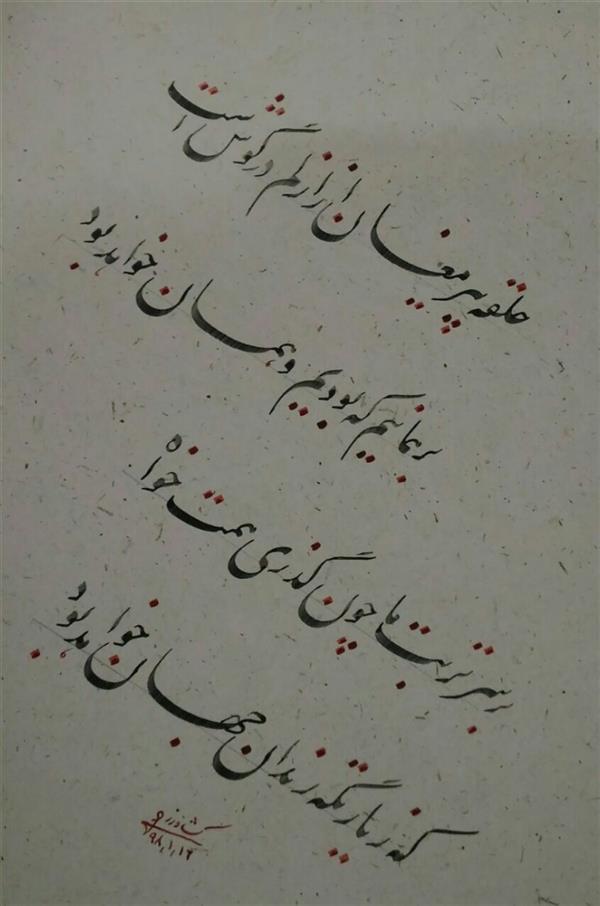 حلقه پیر مغان از ازلم در گوش است
بر همانیم که بودیم و همان خواهد بود
بر سر تربت ما چون گذری همت خواه
که زیارتگه رندان جهان خواهد بود
۹۸,۱,۱۲